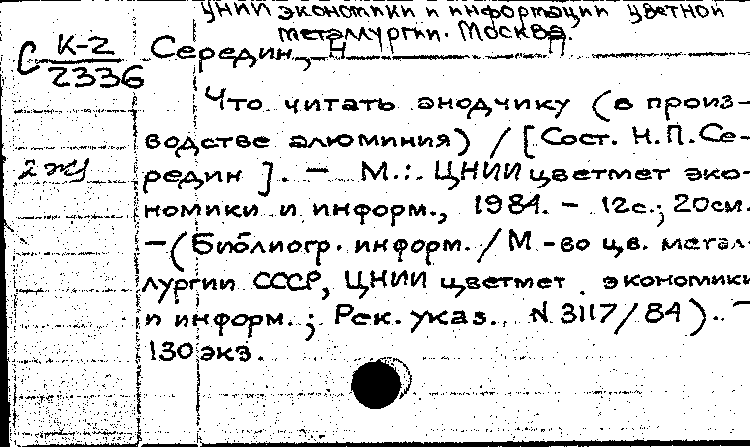 ЦНИИ экономики и информации цветной
металлургии. Москва.
С К-2
2336
Середин, Н П
Что читать анодчику (в произ-
водстве алюминия) / [Сост. Н.П.Се-
2 жд
редин ]. — М.: ЦНИИцветмет эко-
номики и информ., 1984. - 12с.; 20см.
— (Библиогр. информ. / М-во цв. метал-
лургии СССР, ЦНИИ цветмет экономики
и информ. ; Рек. указ. N 3117/84). —
130 экз.